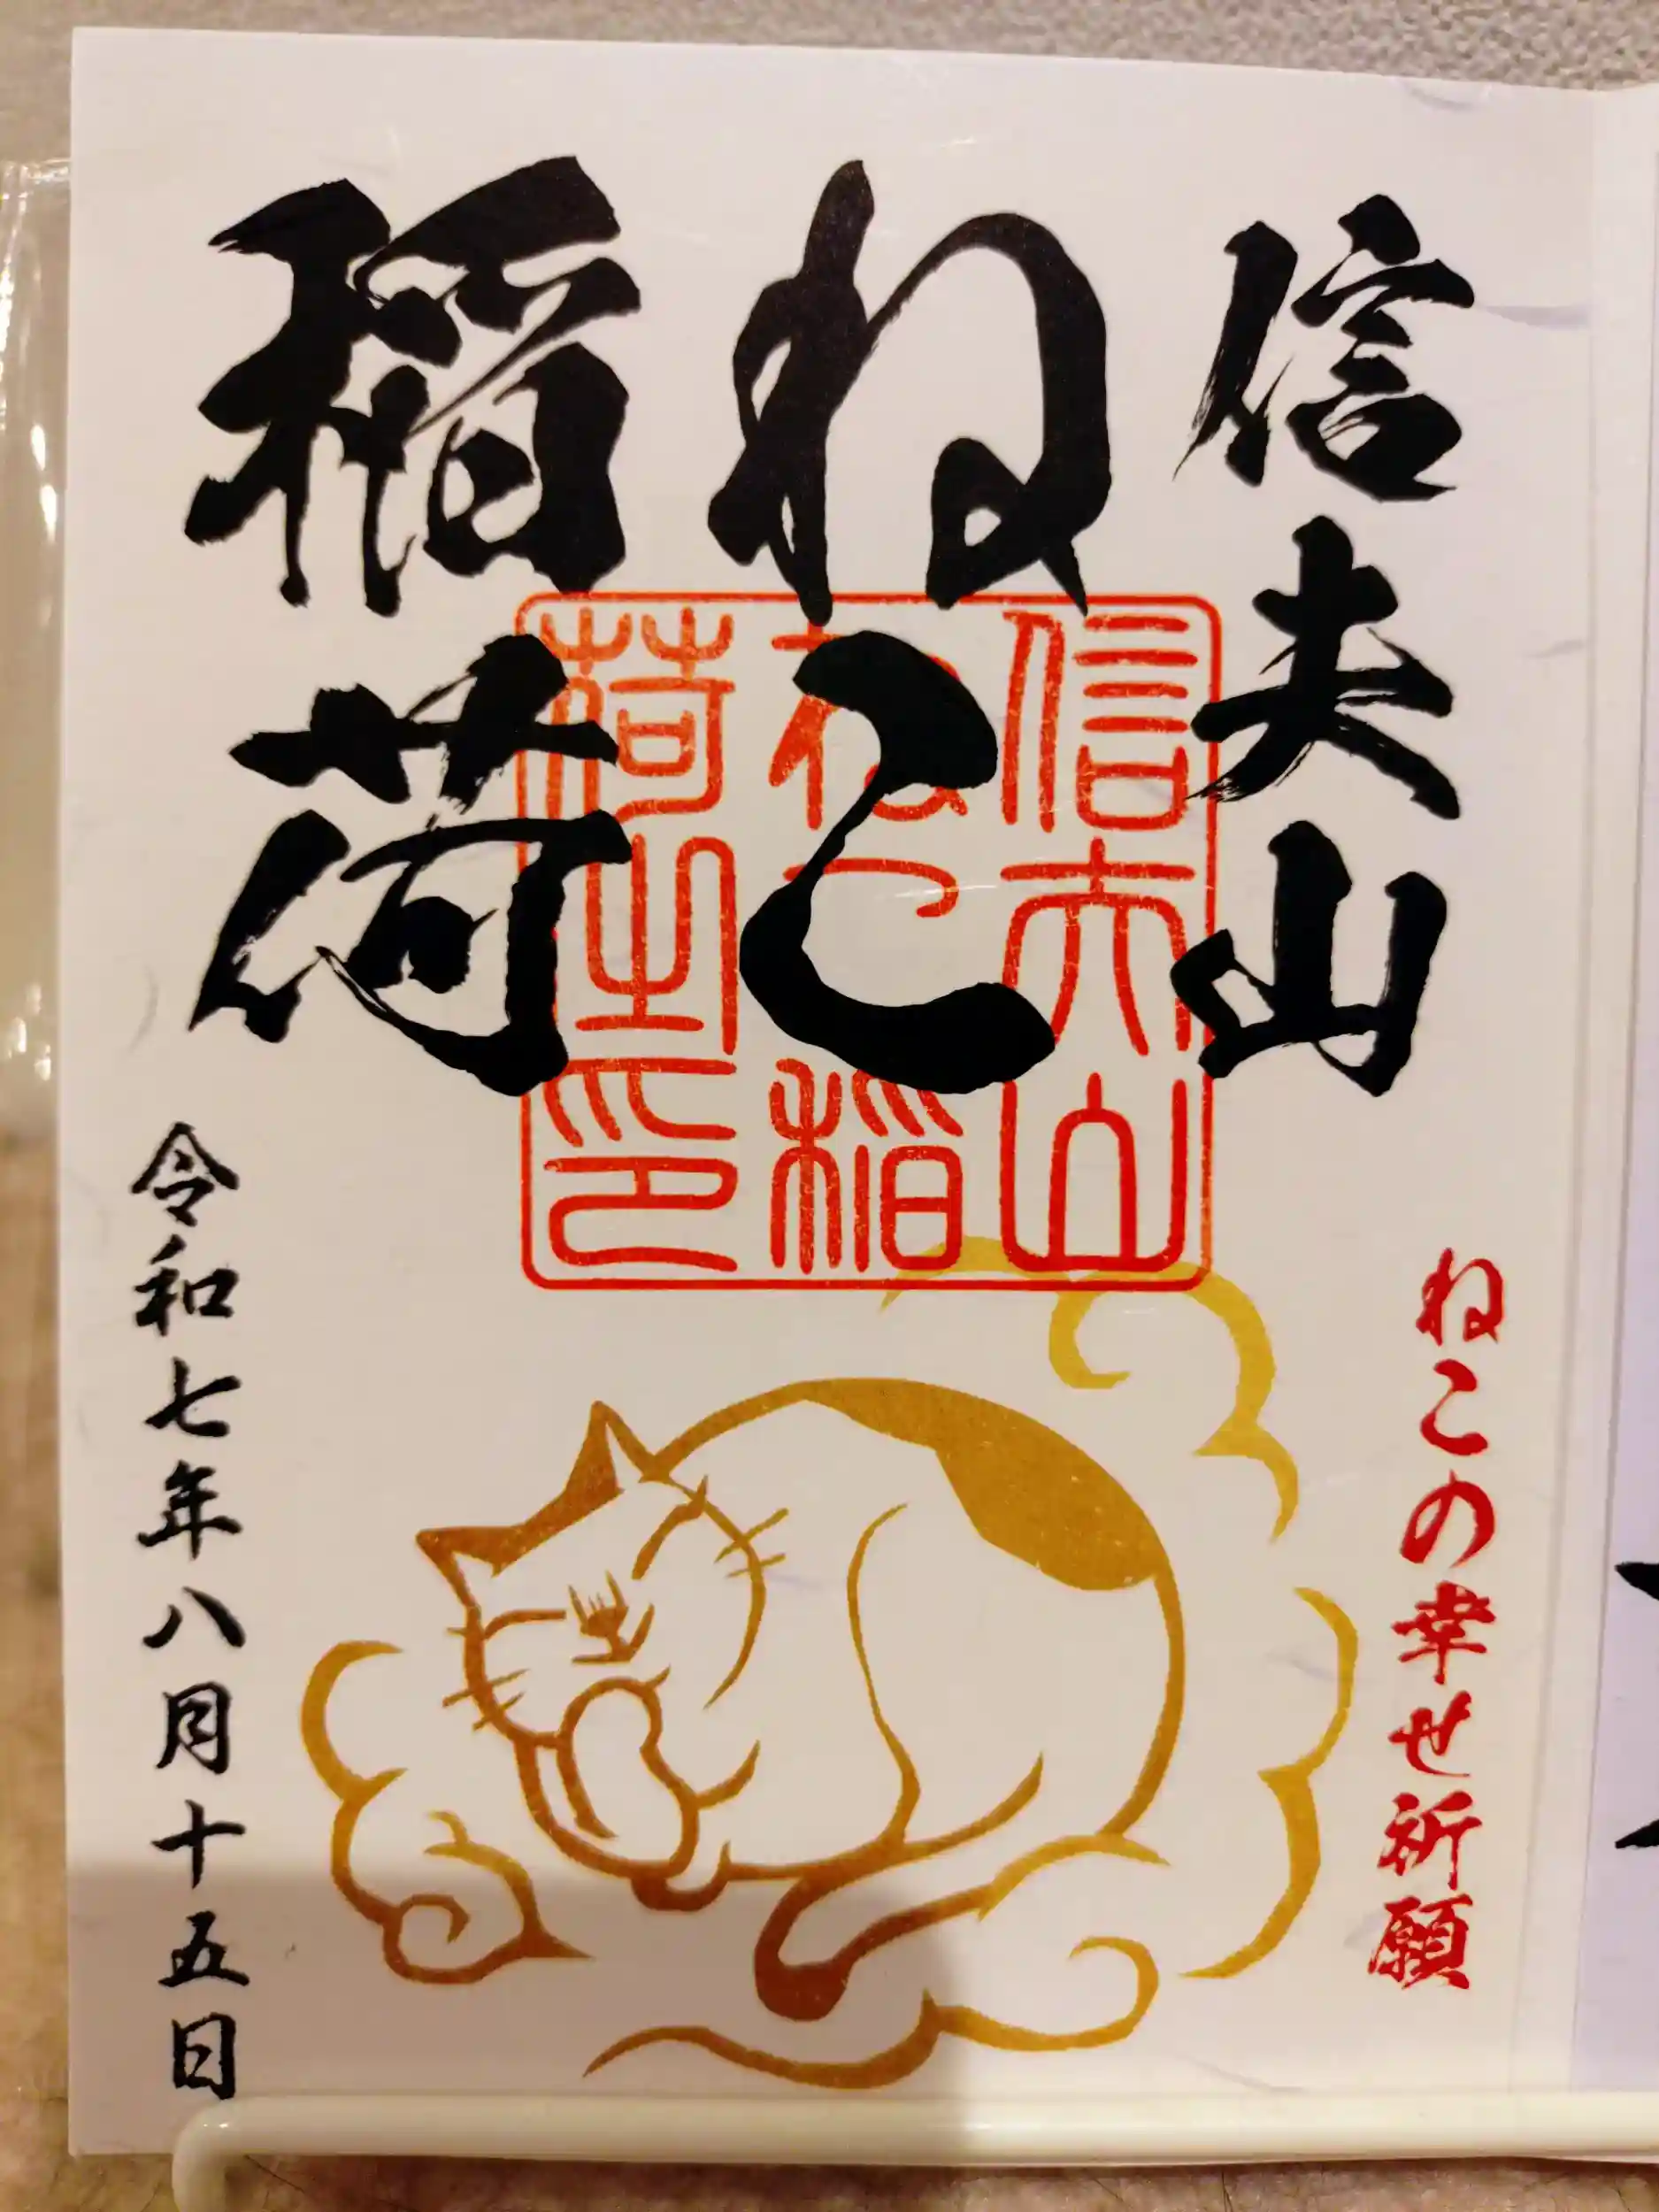 信夫山
ねこ
稲荷
信夫山
ねこ稲
荷之印
ねこの幸せ祈願
令和七年八月十五日